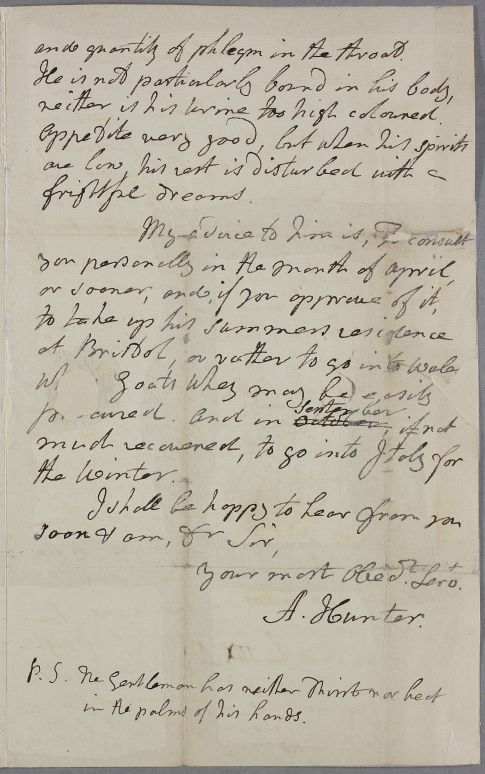 and quantity of phlegm in the throat.
He is not particularly bound in his body,
neither is his urine too high coloured.
Appetite very good, but when his spirits
are low, his rest is disturbed with
frightful dreams.
My advice to him is, to consult
you personally in the month of April,
or sooner, and, if you approve of it,
to take up his summers residence
at Bristol, or rather to go into Wales
Goats Whey may be easily
procured. And in October September, if not
much recovered, to go into Italy for
the Winter.
I shall be happy to hear from you
soon & am, Dr Sir,
Your most Obedt. Sert.
A. Hunter.
P.S. The Gentleman has neither Thirst nor heat
in the palms of his hands.